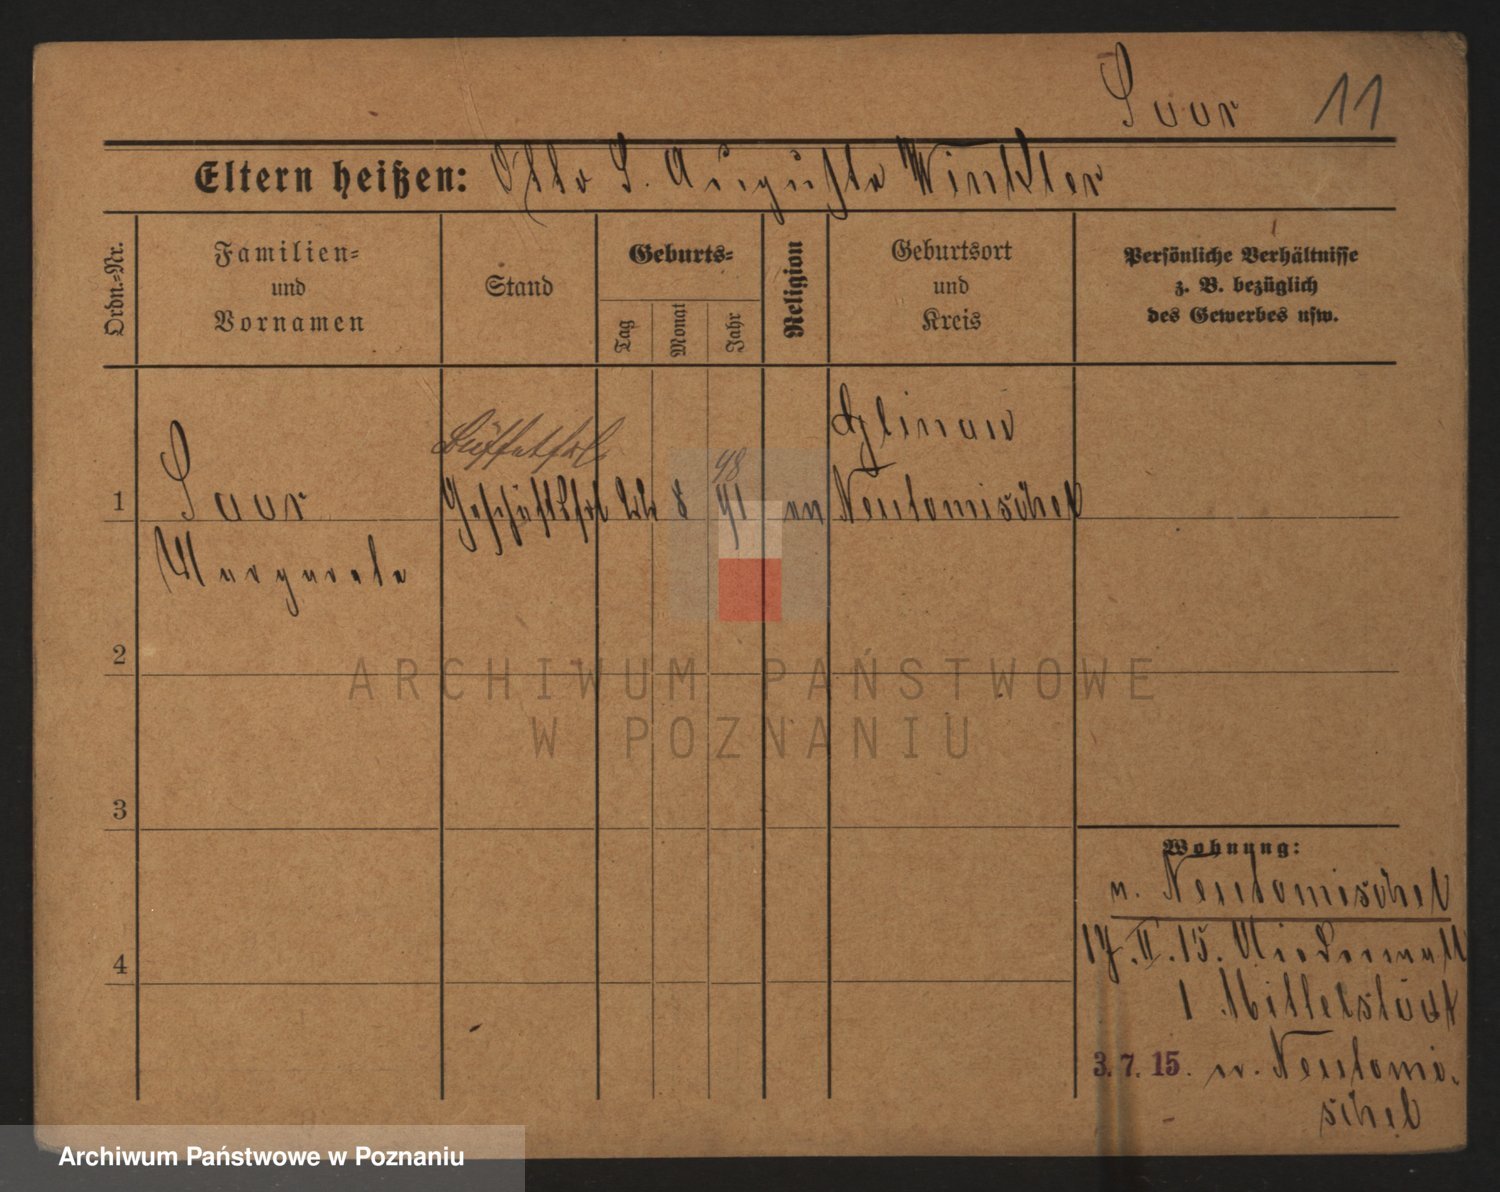 Saur 11
Eltern heißen: Otto S. Augusta Winkler
Ordn.-Nr.
Familien-
und
Vornamen
Stand
Geburts-
Tag
Monat
Jahr
Religion
Geburtsort
und
Kreis
Persönliche Verhältnisse
z. B. bezüglich
des Gewerbes usw.
Glinau
Büffetfrl
98
1 Saur Geschäftsfrl 22 8 91 ev Neutomischel
Margarete
2
3
4
Wohnung:
n. Neutomischel
17.II.15. Niederwall
1 Mittelstück
3.7.15. n. Neutomi-
schel
ARCHIWUM PAŃSTWOWE
W POZNANIU
Archiwum Państwowe w Poznaniu